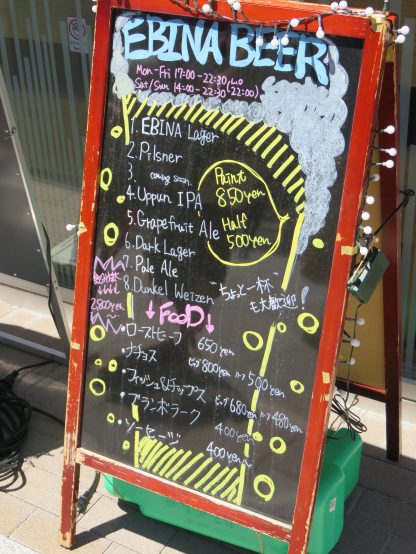 EBINA BEER
Mon-Fri 17:00-22:30 L.O
Sat/Sun 14:00-22:30 (22:00)
1. EBINA Lager
2. Pilsner
3. coming soon.
4. Uppun IPA
5. Grapefruit Ale
6. Dark Lager
7. Pale Ale
8. Dunkel Weizen
Paint
850yen
Half
500yen
"ちょっと一杯"
も大歓迎!
2800yen
↓FOOD↓
・ローストビーフ 650yen
・ナチョス 800yen ハーフ 500yen
・フィッシュ&チップス 680yen ハーフ 480yen
・ブランボラーク 400yen
・ソーセージ 400yen~